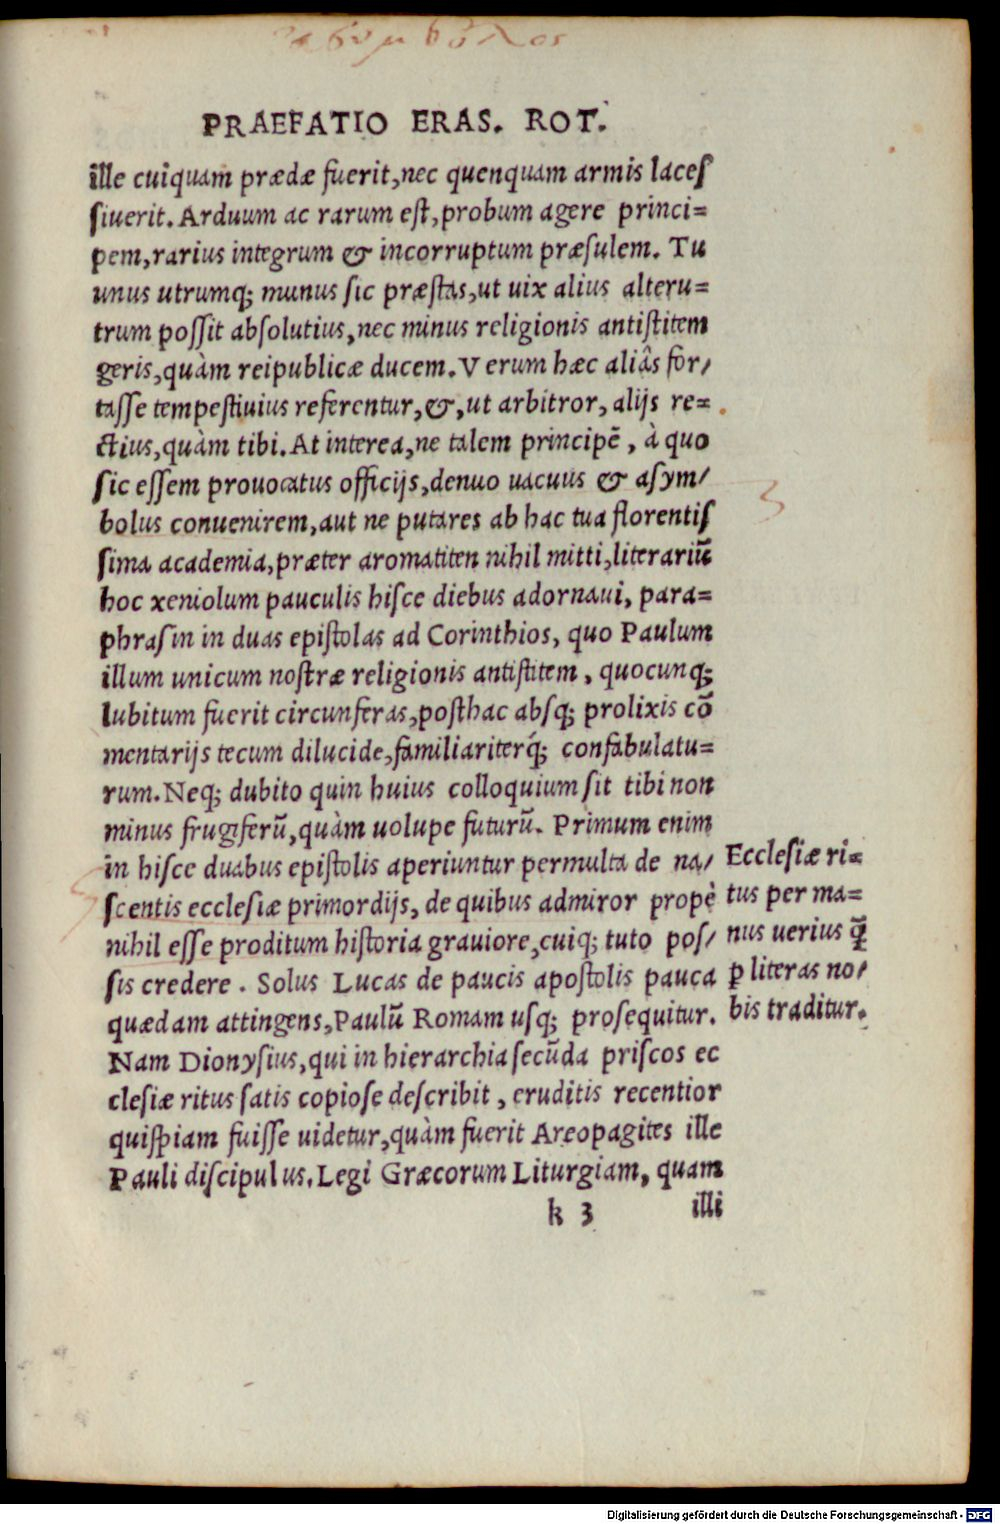 ἀσύμβολος
PRAEFATIO ERAS. ROT.
ille cuiquam prædæ fuerit, nec quenquam armis laceſ
ſiuerit. Arduum ac rarum eſt, probum agere princi=
pem, rarius integrum & incorruptum præſulem. Tu
unus utrumq; munus ſic præſtas, ut uix alius alteru=
trum poſſit abſolutius, nec minus religionis antiſtitem
geris, quàm reipublicæ ducem. Verum hæc aliâs for/
taſſe tempeſtiuius referentur, &, ut arbitror, alijs re=
ctius, quàm tibi. At interea, ne talem principẽ, à quo
ſic eſſem prouocatus officijs, denuo uacuus & aſym/
bolus conuenirem, aut ne putares ab hac tua florentiſ
ſima academia, præter aromatiten nihil mitti, literariũ
hoc xeniolum pauculis hiſce diebus adornaui, para=
phraſin in duas epiſtolas ad Corinthios, quo Paulum
illum unicum noſtræ religionis antiſtitem, quocunq;
lubitum fuerit circunferas, poſthac abſq; prolixis cõ
mentarijs tecum dilucide, familiariterq́; confabulatu=
rum. Neq; dubito quin huius colloquium ſit tibi non
minus frugiferũ, quàm uolupe futurũ. Primum enim
in hiſce duabus epiſtolis aperiuntur permulta de na/
ſcentis eccleſiæ primordijs, de quibus admiror propè
nihil eſſe proditum hiſtoria grauiore, cuiq; tuto poſ/
ſis credere. Solus Lucas de paucis apoſtolis pauca
quædam attingens, Paulũ Romam uſq; proſequitur.
Nam Dionyſius, qui in hierarchia ſecũda priſcos ec
cleſiæ ritus ſatis copioſe deſcribit, eruditis recentior
quiſpiam fuiſſe uidetur, quàm fuerit Areopagites ille
Pauli diſcipulus. Legi Græcorum Liturgiam, quam
k 3 illi
Eccleſiæ ri=
tus per ma=
nus uerius q̃
ꝑ literas no/
bis traditur.
Digitalisierung gefördert durch die Deutsche Forschungsgemeinschaft - DFG